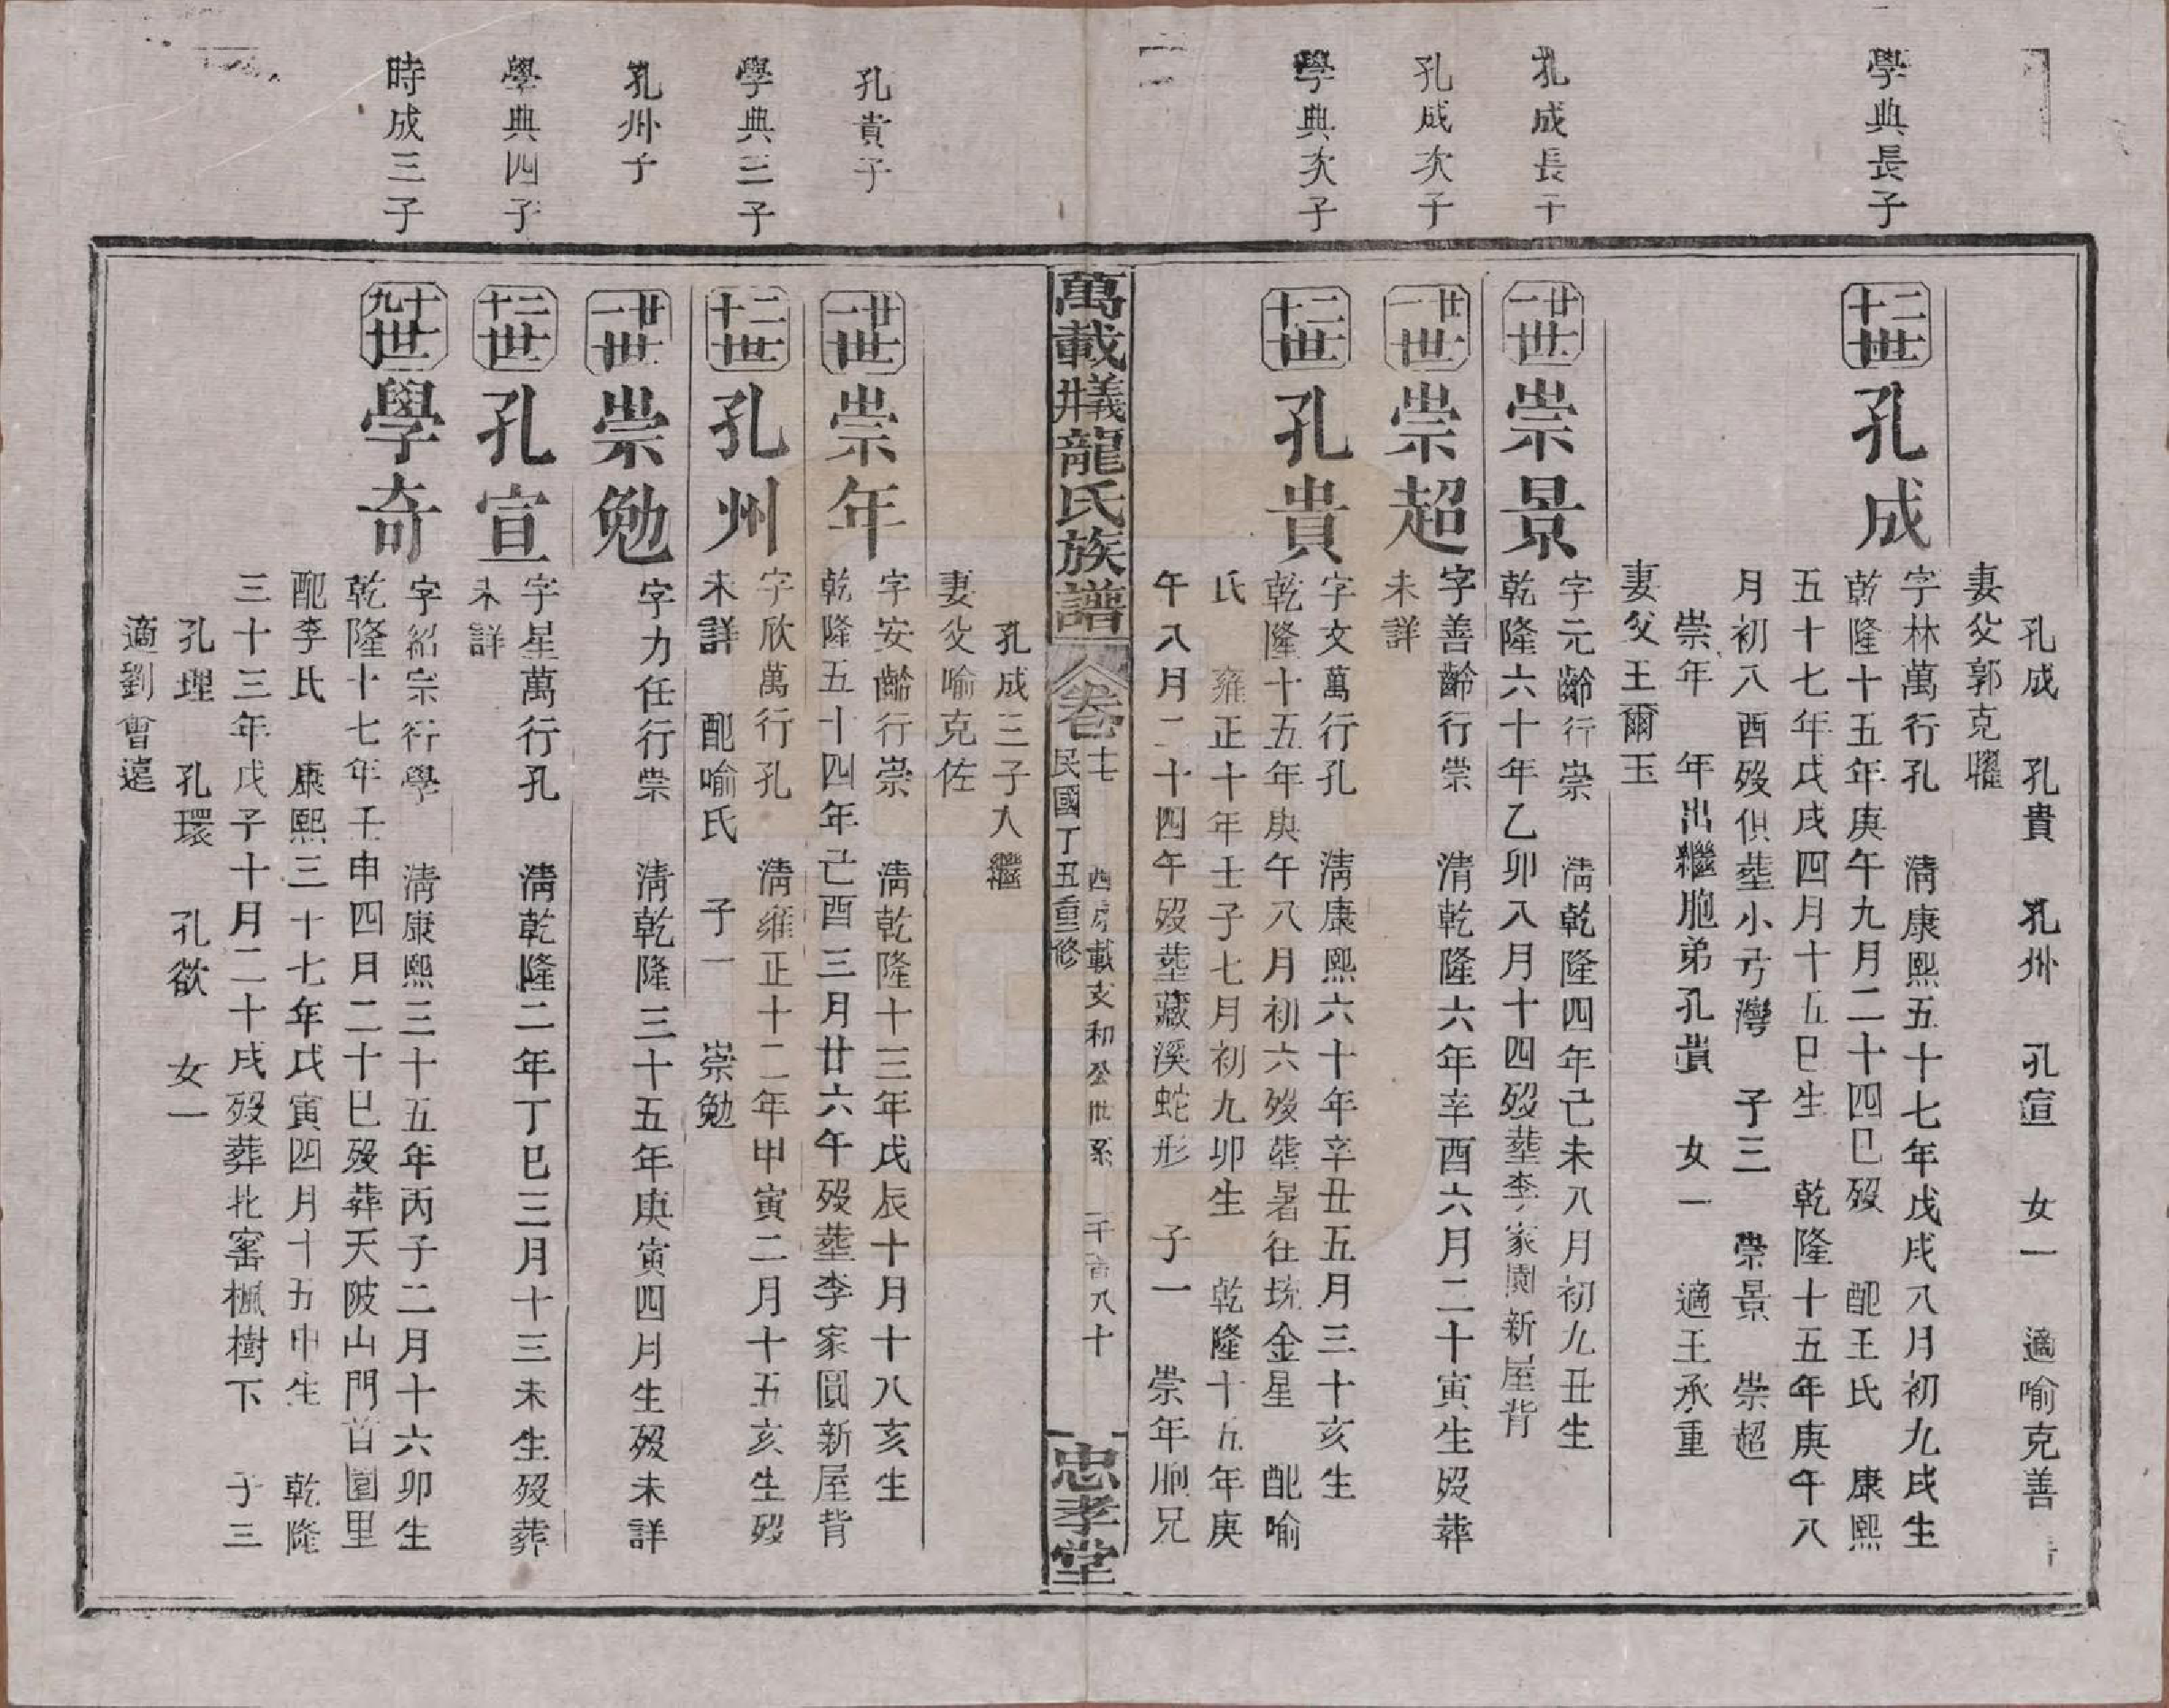 孔成　孔貴　孔州　孔宣　女一　適喻克善
妻父郭克㬬
學典長子
二十世
孔成
字林萬行孔　清康熙五十七年戊戌八月初九戌生
乾隆十五年庚午九月二十四巳歿　配王氏　康熙
五十七年戊戌四月十五巳生　乾隆十五年庚午八
月初八酉歿俱塟小弓灣　子三　崇景　崇超
崇年　年出繼胞弟孔貴　女一　適王承重
妻父王爾玉
孔成長子
廿一世
崇景
字元齡行崇　清乾隆四年己未八月初九丑生
乾隆六十年乙卯八月十四歿塟李家園新屋背
孔成次子
廿一世
崇超
字善齡行崇　清乾隆六年辛酉六月二十寅生歿葬
未詳
學典次子
二十世
孔貴
字文萬行孔　清康熙六十年辛丑五月三十亥生
乾隆十五年庚午八月初六歿塟暑往坑金星　配喻
氏　雍正十年壬子七月初九卯生　乾隆十五年庚
午八月二十四午歿塟藏溪蛇形　子一　崇年胞兄
萬載牂𦍕龍氏族譜　卷十七　民國丁丑重修　載支和公世系　忠孝堂
孔成三子入繼
妻父喻克佐
孔貴子
廿一世
崇年
字安齡行崇　清乾隆十三年戊辰十月十八亥生
乾隆五十四年己酉三月廿六午歿塟李家園新屋背
學典三子
二十世
孔州
字欣萬行孔　清雍正十二年甲寅二月十五亥生歿
未詳　配喻氏　子一　崇勉
孔州子
廿一世
崇勉
字力任行崇　清乾隆三十五年庚寅四月生歿未詳
學典四子
二十世
孔宣
字星萬行孔　清乾隆二年丁巳三月十三未生歿葬
未詳
時成三子
十九世
學奇
字紹宗行學　清康熙三十五年丙子二月十六卯生
乾隆十七年壬申四月二十巳歿葬天陂山門首園里
配李氏　康熙三十七年戊寅四月十五申生　乾隆
三十三年戊子十月二十戌歿葬北窰楓樹下　子三
孔理　孔環　孔欲　女一
適劉會遠